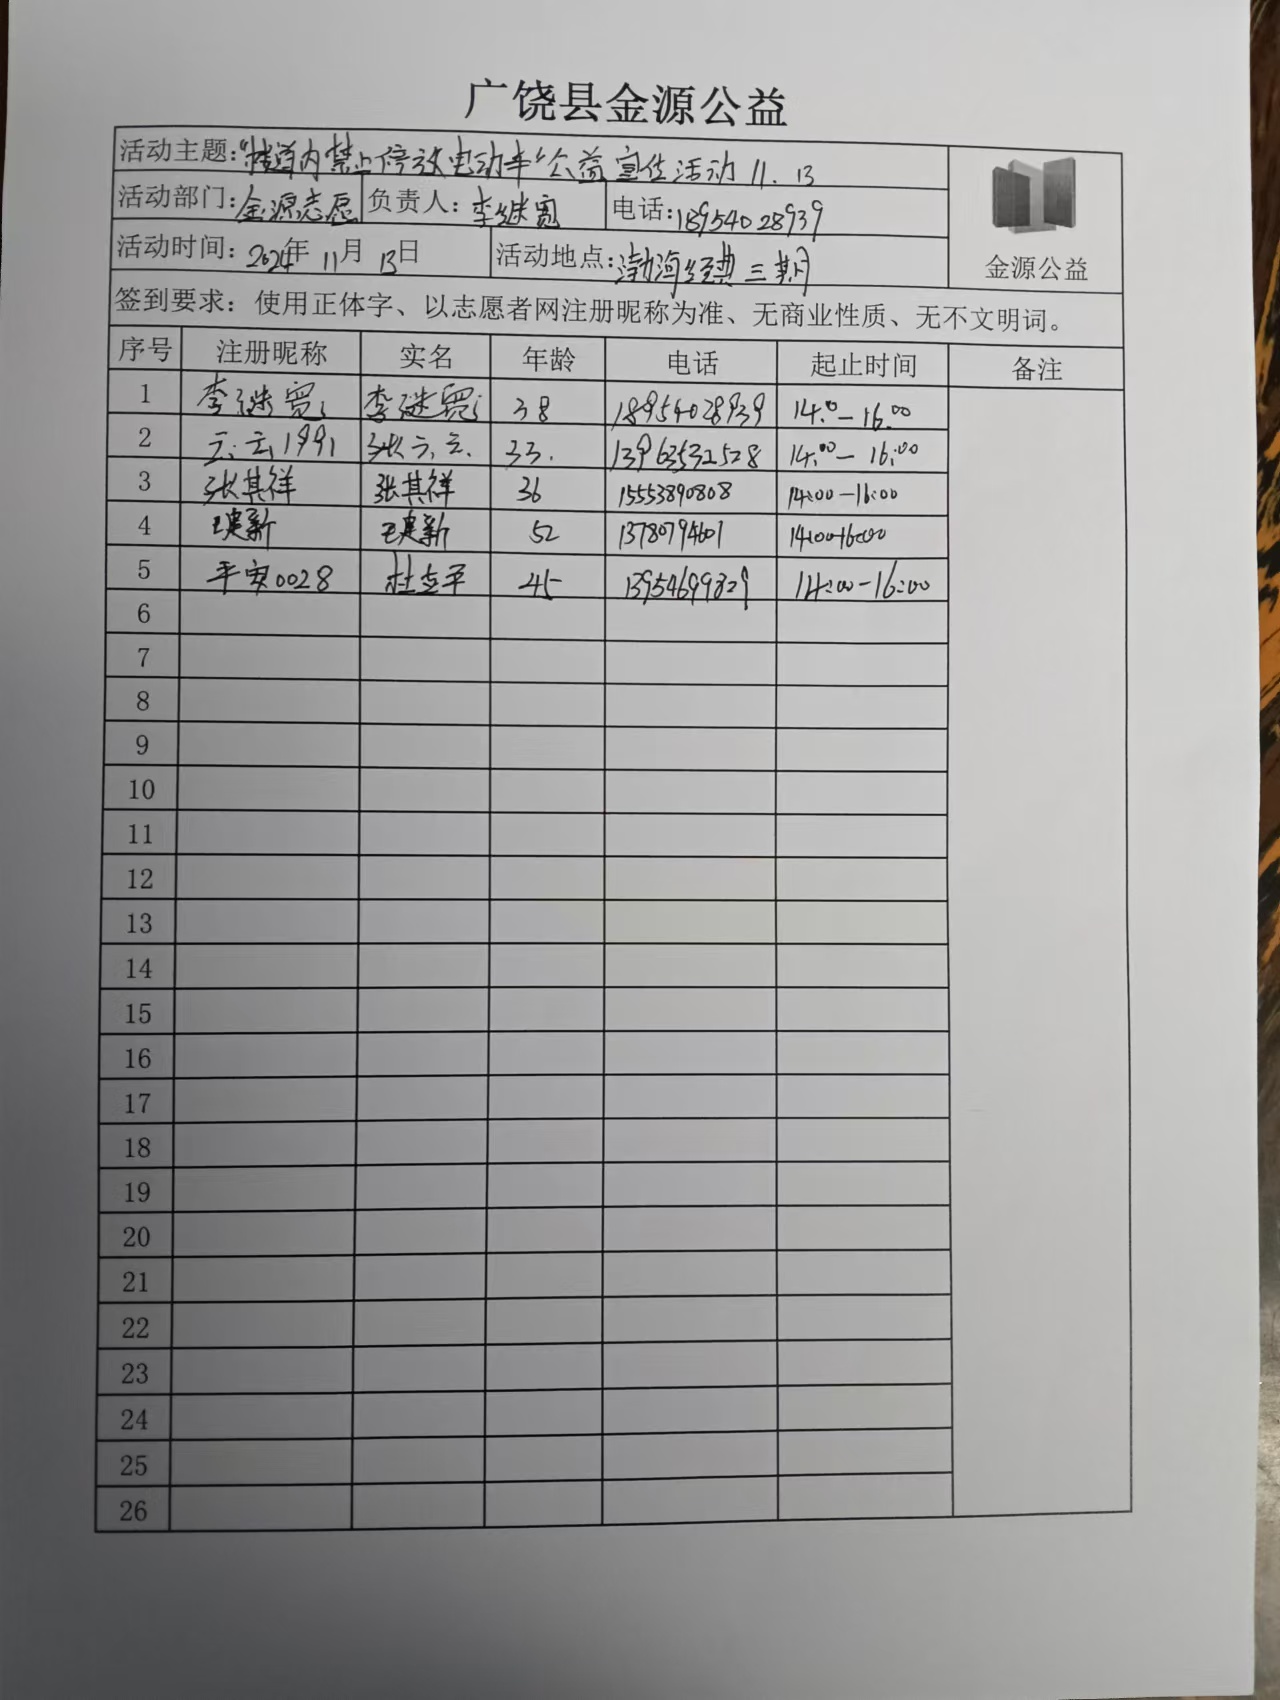 广饶县金源公益
活动主题:“楼道内禁止停放电动车”公益宣传活动 11.13
活动部门:金源志愿 负责人:李继宽 电话:18954028939
活动时间:2024年11月13日 活动地点:渤海经典三期
金源公益
签到要求:使用正体字、以志愿者网注册昵称为准、无商业性质、无不文明词。
序号 注册昵称 实名 年龄 电话 起止时间 备注
1 李继宽 李继宽 38 18954028939 14:00-16:00
2 云云1991 张云云 33. 13963532528 14:00-16:00
3 张其祥 张其祥 36 15553890808 14:00-16:00
4 王建新 王建新 52 13780794601 14:00-16:00
5 平安0028 杜立平 45 13954699829 14:00-16:00
6
7
8
9
10
11
12
13
14
15
16
17
18
19
20
21
22
23
24
25
26